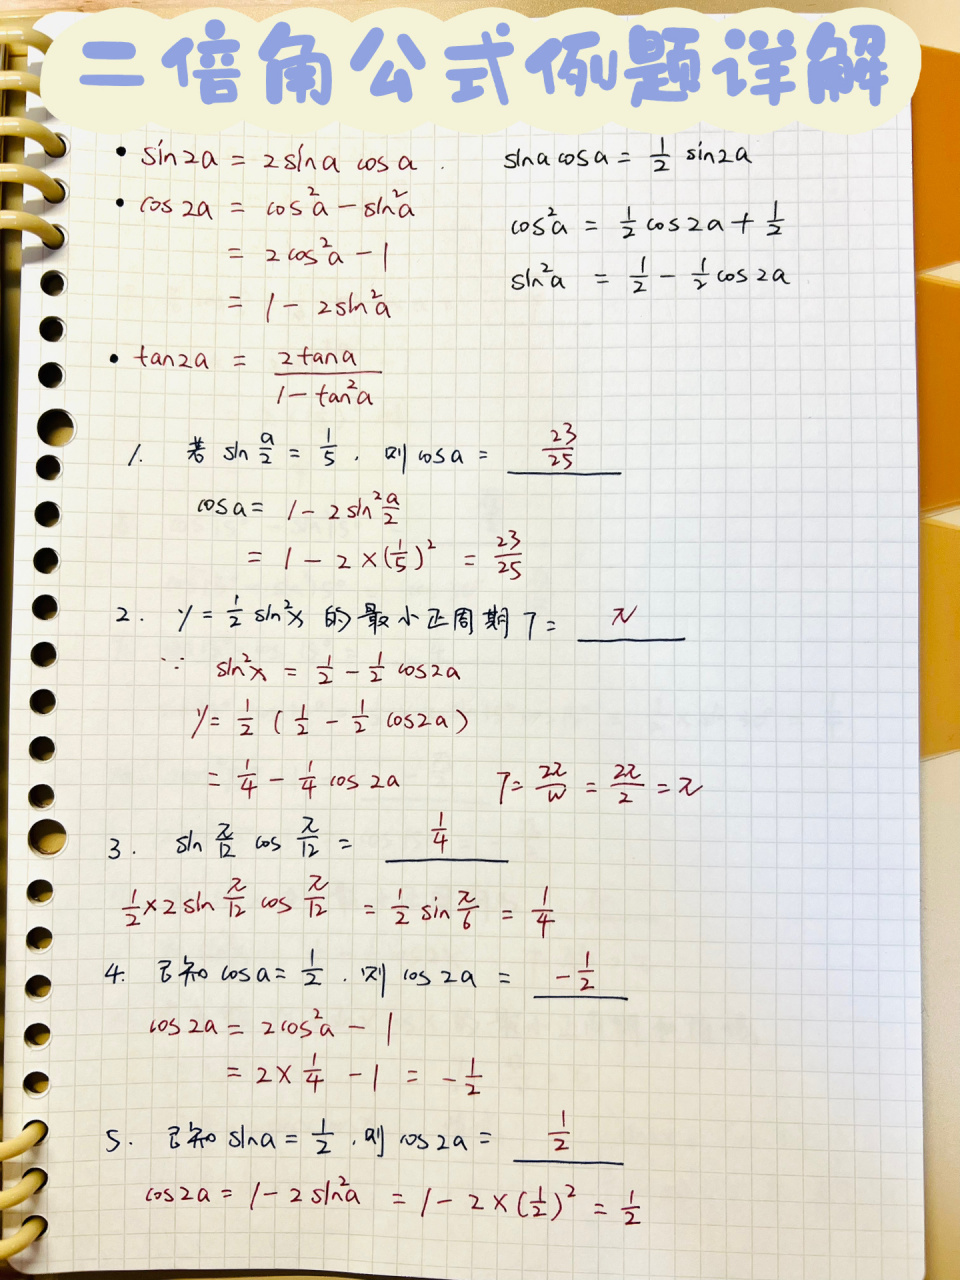 二倍角公式例题详解
• sin2a = 2sina cosa . sinacosa = 1/2 sin2a
• cos2a = cos²a - sin²a
= 2cos²a - 1
= 1 - 2sin²a
cos²a = 1/2 cos2a + 1/2
sin²a = 1/2 - 1/2 cos2a
• tan2a = 2tana / (1 - tan²a)
1. 若 sin a/2 = 1/5 . 则 cosa = 23/25
cosa = 1 - 2sin² a/2
= 1 - 2×(1/5)² = 23/25
2. y = 1/2 sin²x 的最小正周期 T = π
∵ sin²x = 1/2 - 1/2 cos2a
y = 1/2 ( 1/2 - 1/2 cos2a )
= 1/4 - 1/4 cos2a T = 2π/w = 2π/2 = π
3. sin π/12 cos π/12 = 1/4
1/2 × 2 sin π/12 cos π/12 = 1/2 sin π/6 = 1/4
4. 已知 cosa = 1/2 . 则 cos2a = -1/2
cos2a = 2cos²a - 1
= 2 × 1/4 - 1 = -1/2
5. 已知 sina = 1/2 . 则 cos2a = 1/2
cos2a = 1 - 2sin²a = 1 - 2×(1/2)² = 1/2